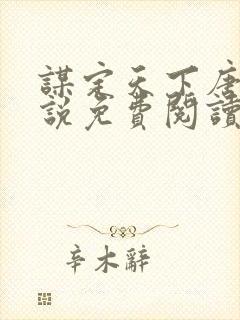 謀定天下唐
說免費閱讀
辛木辭